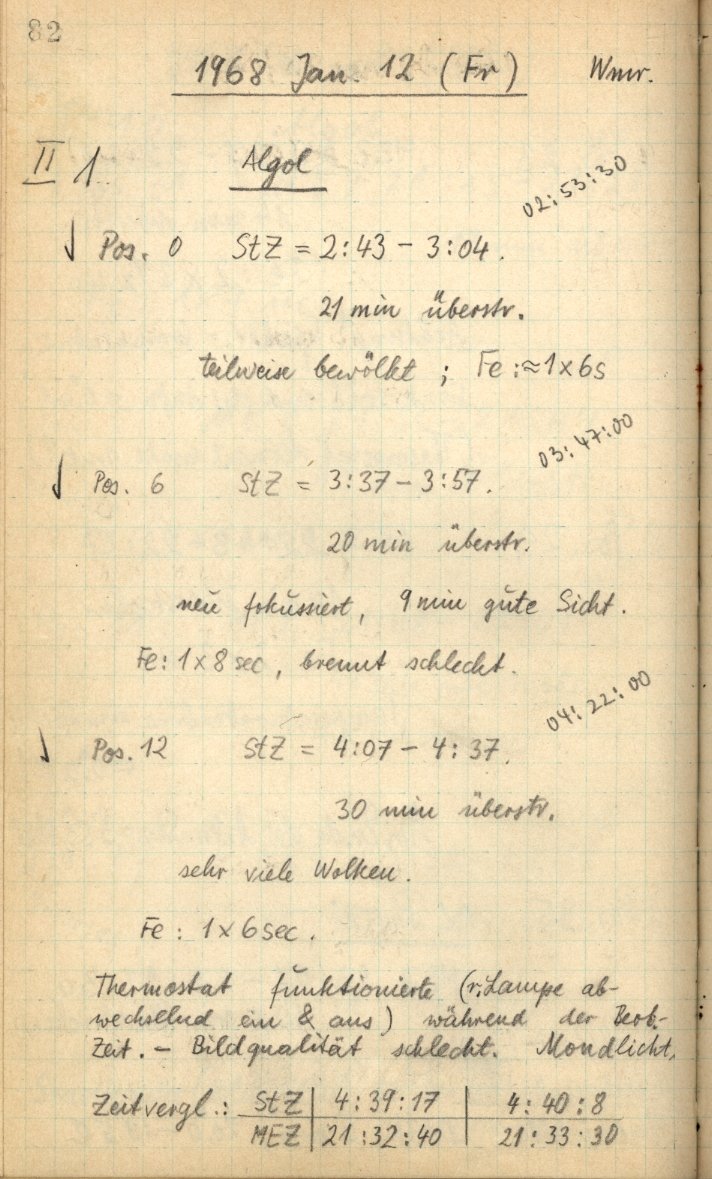 82
1968 Jan. 12 (Fr) Wmr.
II 1 Algol
02:53:30
Pos. 0 StZ = 2:43 – 3:04.
21 min überstr.
teilweise bewölkt ; Fe: ≈ 1 x 6s
03:47:00
Pos. 6 StZ = 3:37 – 3:57.
20 min überstr.
neu fokussiert, 9 min gute Sicht.
Fe: 1 x 8 sec, brennt schlecht.
04:22:00
Pos. 12 StZ = 4:07 – 4:37.
30 min überstr.
sehr viele Wolken.
Fe: 1 x 6 sec.
Thermostat funktionierte (r. Lampe ab-
wechselnd ein & aus) während der Beob.-
Zeit. – Bildqualität schlecht. Mondlicht.
Zeitvergl.: StZ | 4:39:17 | 4:40:8
MEZ | 21:32:40 | 21:33:30